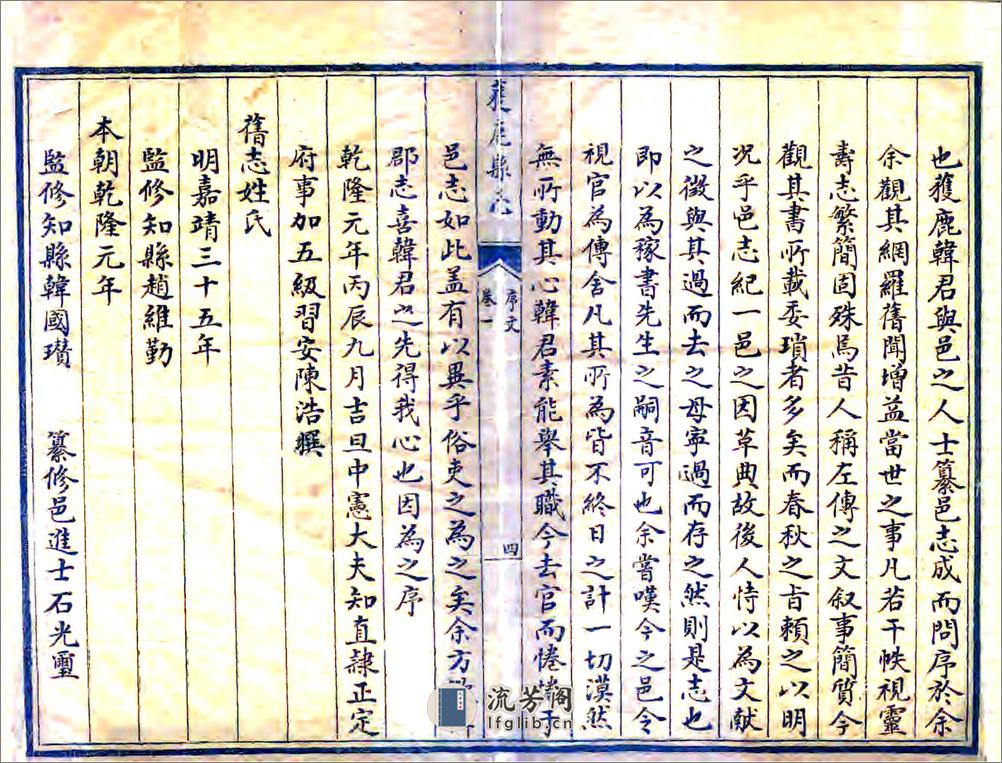 也獲鹿韓君與邑之人士纂邑志成而問序於余
余觀其網羅舊聞增益當世之事凡若干帙視靈
壽志繁簡固殊焉昔人稱左傳之文叙事簡質今
觀其書所載委瑣者多矣而春秋之旨賴之以明
況乎邑志紀一邑之因草典故後人恃以為文獻
之徵與其過而去之毋寧過而存之然則是志也
即以為稼書先生之嗣音可也余嘗嘆今之邑令
視官為傳舍凡其所為皆不終日之計一切漠然
無所動其心韓君素能舉其職今去官而惓惓于
獲鹿縣志
卷一
序文
四
邑志如此盖有以異乎俗吏之為之矣余方
郡志喜韓君之先得我心也因為之序
乾隆元年丙辰九月吉旦中憲大夫知直隸正定
府事加五級習安陳浩撰
舊志姓氏
明嘉靖三十五年
監修知縣趙維勤
本朝乾隆元年
監修知縣韓國瓚 纂修邑進士石光璽
流芳閣
lfglib.cn